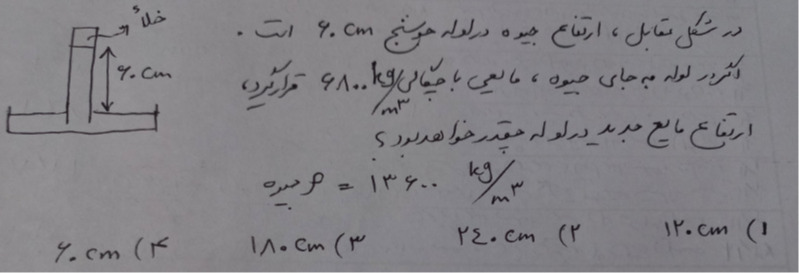 خلأ
۶۰ cm
در شکل مقابل، ارتفاع جیوه در لوله جوسنج ۶۰ cm است.
اگر در لوله به جای جیوه، مایعی با چگالی ۶۸۰۰ kg/m³ قرار گیرد،
ارتفاع مایع جدید در لوله چقدر خواهد بود؟
ρ جیوه = ۱۳۶۰۰ kg/m³
۱) ۱۲۰ cm ۲) ۲۴۰ cm ۳) ۱۸۰ cm ۴) ۶۰ cm